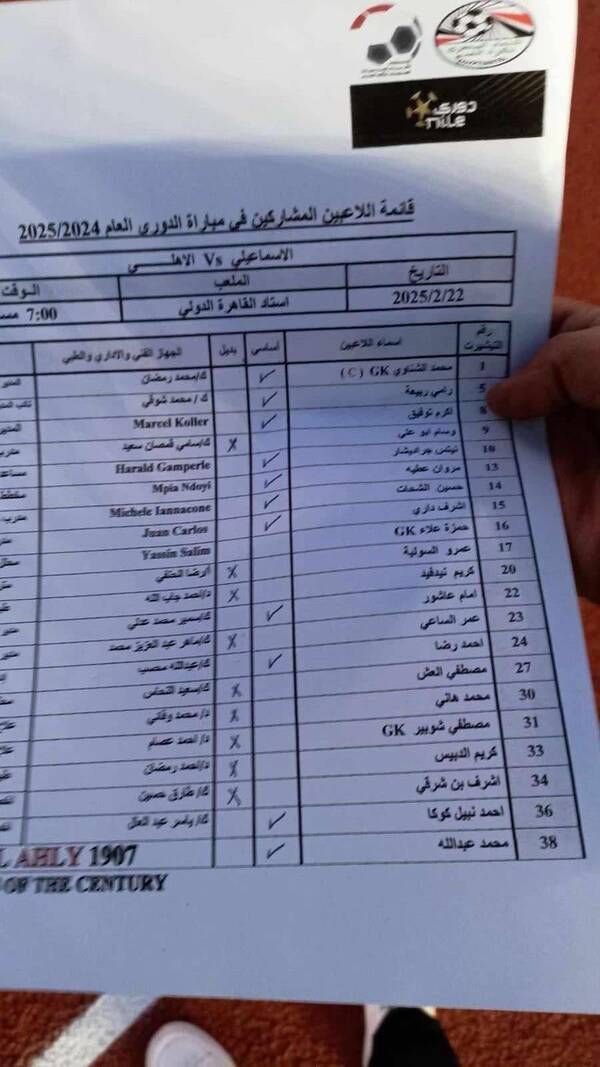 دوري nile
قائمة اللاعبين المشاركين في مباراة الدوري العام 2025/2024
الاسماعيلي Vs الاهلي
التاريخ الملعب الوقت
2025/2/22 استاد القاهرة الدولي 7:00
رقم التيشيرت اسماء اللاعبين أساسي بديل الجهاز الفني والاداري والطبي
1 محمد الشناوي GK (C) ✓ ك/محمد رمضان
5 رامي ربيعة ✓ ك/ محمد شوقي
8 اكرم توفيق ✓ Marcel Koller
9 وسام ابو علي X ك/سامي قمصان سعيد
10 نيتس جراديشار ✓ Harald Gamperle
13 مروان عطيه ✓ Mpia Ndoyi
14 حسين الشحات ✓ Michele Iannacone
15 اشرف داري ✓ Juan Carlos
16 حمزة علاء GK Yassin Salim
17 عمرو السولية X أ/رضا الحنفي
20 كريم نيدفيد X د/احمد جاب الله
22 امام عاشور ✓ ك/سمير محمد عدلي
23 عمر الساعي X ك/ماهر عبد العزيز محمد
24 احمد رضا ✓ ك/عبدالله
27 مصطفي العش X ك/سعيد النحاس
30 محمد هاني X د/ محمد وفائي
31 مصطفي شوبير GK X د/احمد عصام
33 كريم الدبيس X د/احمد رمضان
34 اشرف بن شرقي X ك/ طارق حسين
36 احمد نبيل كوكا ✓ ك/ ياسر عبد العال
38 محمد عبدالله ✓
L AHLY 1907
OF THE CENTURY